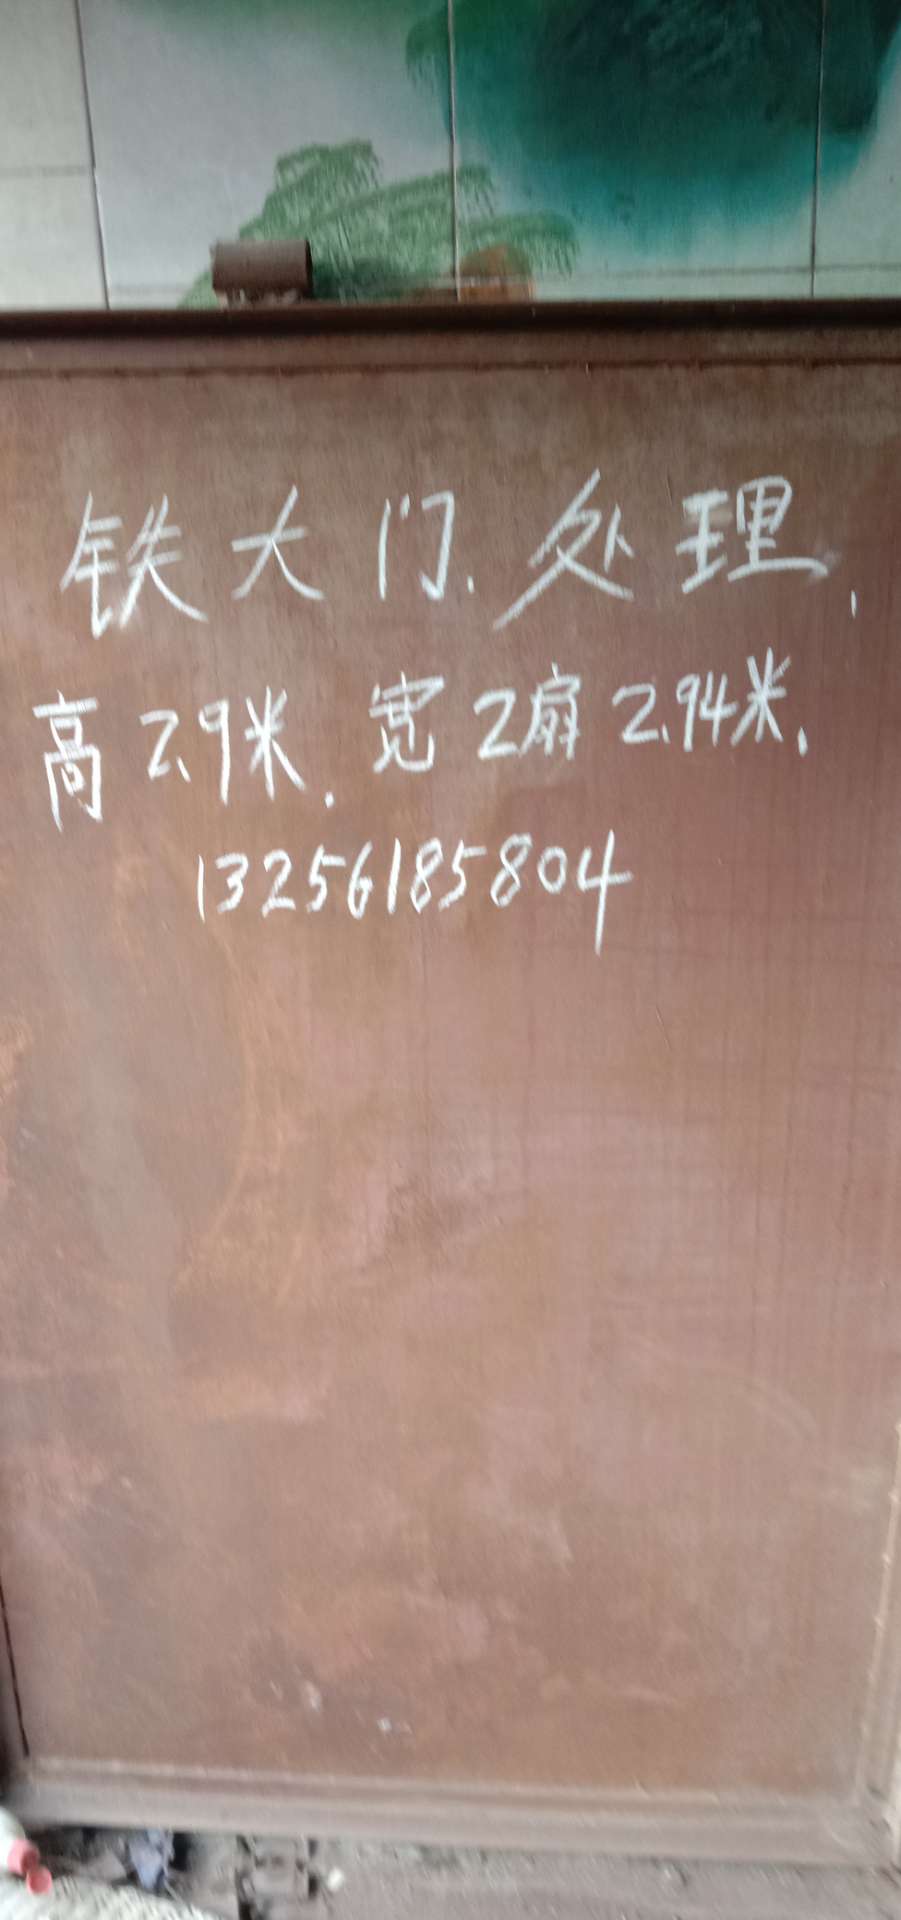 铁大门.处理.
高2.9米.宽2扇2.94米.
13256185804